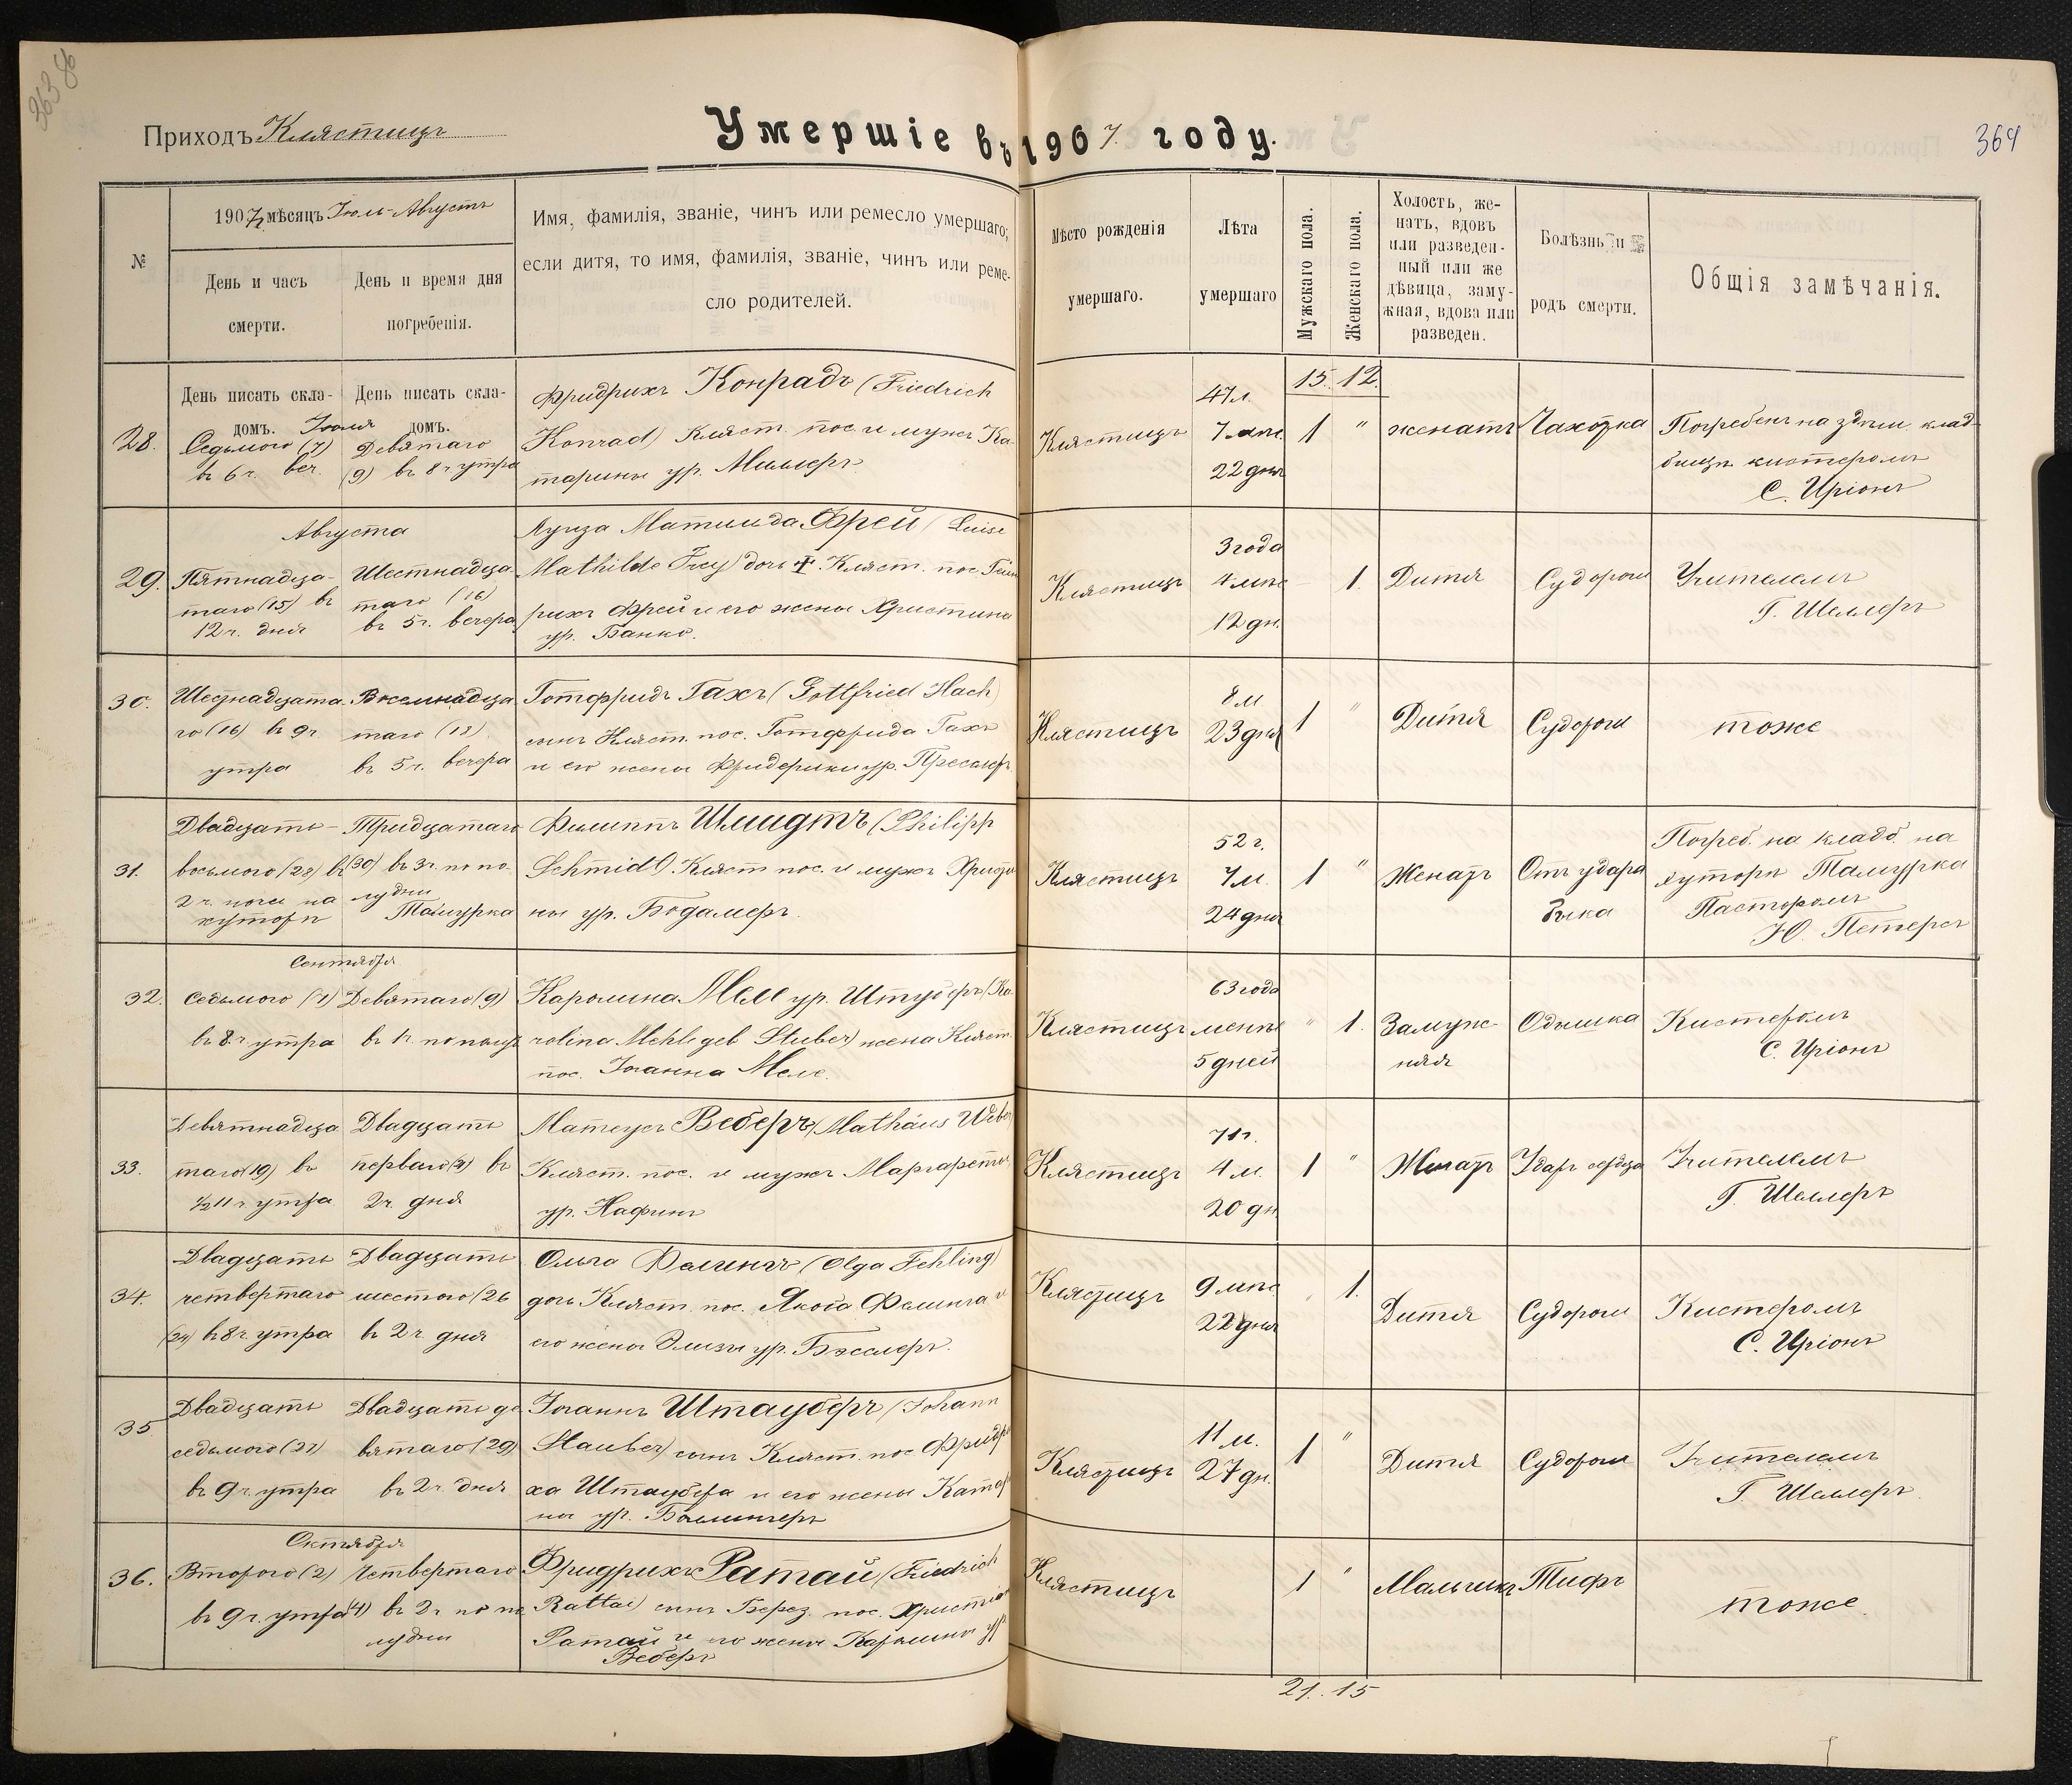 363 об
Приходъ Клястицъ
Умершіе въ 1907. году.
364
№
1907 мѣсяцъ Іюль-Августъ
День и часъ
смерти.
День и время дня
погребенія.
Имя, фамилія, званіе, чинъ или ремесло умершаго;
если дитя, то имя, фамилія, званіе, чинъ или реме-
сло родителей.
Мѣсто рожденія
умершаго.
Лѣта
умершаго
Мужскаго пола.
Женскаго пола.
Холостъ, же-
натъ, вдовъ
или разведен-
ный или же
дѣвица, заму-
жная, вдова или
разведен.
Болѣзнь и
родъ смерти.
Общія замѣчанія.
День писать скла-
домъ.
День писать скла-
домъ.
15. 12.
28.
Іюля
Седьмого (7)
въ 6 ч. веч.
Девятаго
(9) въ 8 ч утра
Фридрихъ Конрадъ (Friedrich
Konrad) Кляст. пос. и мужъ Ка-
тарины ур. Миллеръ.
Клястицъ
47 л.
7 мѣс.
22 дня
1 "
женатъ
Чахотка
Погребенъ на здѣш. клад-
бищѣ кистеромъ
С. Иріонъ
29.
Августа
Пятнадца-
таго (15) въ
12 ч. дня
Шестнадца
таго (16)
въ 5 ч. вечера
Луиза Матильда Фрей (Luise
Mathilde Frey) дочь Кляст. пос. Гейн
рихъ Фрей и его жены Христина
ур. Банко.
Клястицъ
3 года
4 мѣс
12 дн.
1.
Дитя
Судороги
Учителемъ
Г. Шеллеръ
30.
Шестнадцата
го (16) въ 9 ч
утра
Восемнадца
таго (18)
въ 5 ч. вечера
Готфридъ Гахъ (Gottfried Hach)
сынъ Кляст. пос. Готфрида Гахъ
и его жены Фридерики ур. Пресслеръ
Клястицъ
8 м
23 дня
1 "
Дитя
Судороги
тоже
31.
Двадцать-
восьмого (28) въ
2 ч. ночи на
хуторѣ
Тридцатаго
(30) въ 3 ч. по по-
лудни
Тамурка
Филиппъ Шмидтъ (Philipp
Schmidt) Кляст пос. и мужъ Христи
ны ур. Бодамеръ.
Клястицъ
52 г.
7 м.
24 дня
1 "
Женатъ
Отъ удара
быка
Погреб. на кладб. на
хуторѣ Тамурка
Пасторомъ
Ю. Петерсъ
32.
Сентября
Седьмого (7)
въ 8 ч утра
Девятаго (9)
въ 1 ч. по полуд
Каролина Меле ур. Штуберъ (Ka-
rolina Mehle geb Stuber) жена Кляст.
пос. Іоанна Меле.
Клястицъ
63 года
менѣе
5 дней
" 1.
Замуж-
няя
Одышка
Кистеромъ
С. Иріонъ
33.
Девятнадца
таго (19) въ
½ 11 ч утра
Двадцать
перваго (21) въ
2 ч. дня
Матеусъ Веберъ (Mathäus Weber
Кляст. пос. и мужъ Маргареты
ур. Нафингъ
Клястицъ
71 г.
4 м.
20 дн
1 "
Женатъ
Ударъ сердца
Учителемъ
Г. Шеллеръ
34.
Двадцать
четвертаго
(24) въ 8 ч. утра
Двадцать
шестого (26
въ 2 ч. дня
Ольга Фелингъ (Olga Fehling)
дочь Кляст. пос. Якоба Фелинга и
его жены Элизы ур. Бесслеръ.
Клястицъ
9 мѣс
22 дня
1.
Дитя
Судороги
Кистеромъ
С. Иріонъ
35
Двадцать
седьмого (27)
въ 9 ч. утра
Двадцать де
вятаго (29)
въ 2 ч. дня
Іоаннъ Штауберъ (Johann
Stauber) сынъ Кляст. пос Фридри
ха Штаубера и его жены Катер
ны ур. Боллингеръ
Клястицъ
11 м.
27 дн.
1 "
Дитя
Судороги
Учителемъ
Г. Шеллеръ
36.
Октября
Второго (2)
въ 9 ч. утра
Четвертаго
(4) въ 2 ч по по
лудни
Фридрихъ Ратай (Friedrich
Rattai) сынъ Берез. пос. Христіа
Ратай и его жены Каролины ур
Веберъ
Клястицъ
1 "
Мальчикъ
Тифъ
тоже.
21. 15